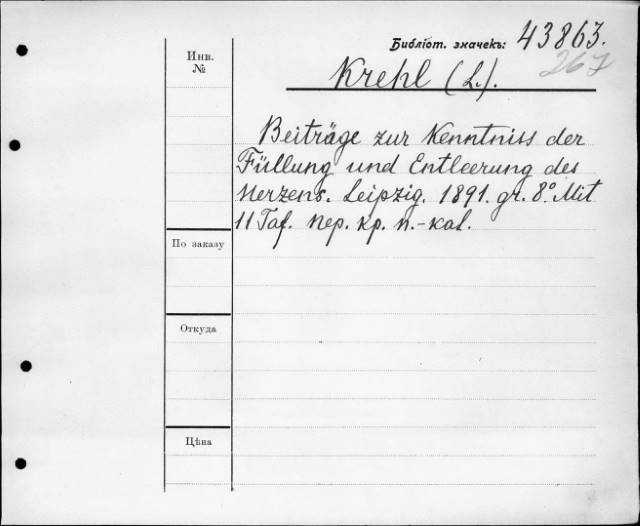 Библіот. значекъ: 43863.
267
Инв.
№
Krehl (L.).
Beiträge zur Kenntniss der
Füllung und Entleerung des
Herzens. Leipzig. 1891. gr. 8º. Mit
11 Taf. пер. кр. п.-кал.
По заказу
Откуда
Цѣна